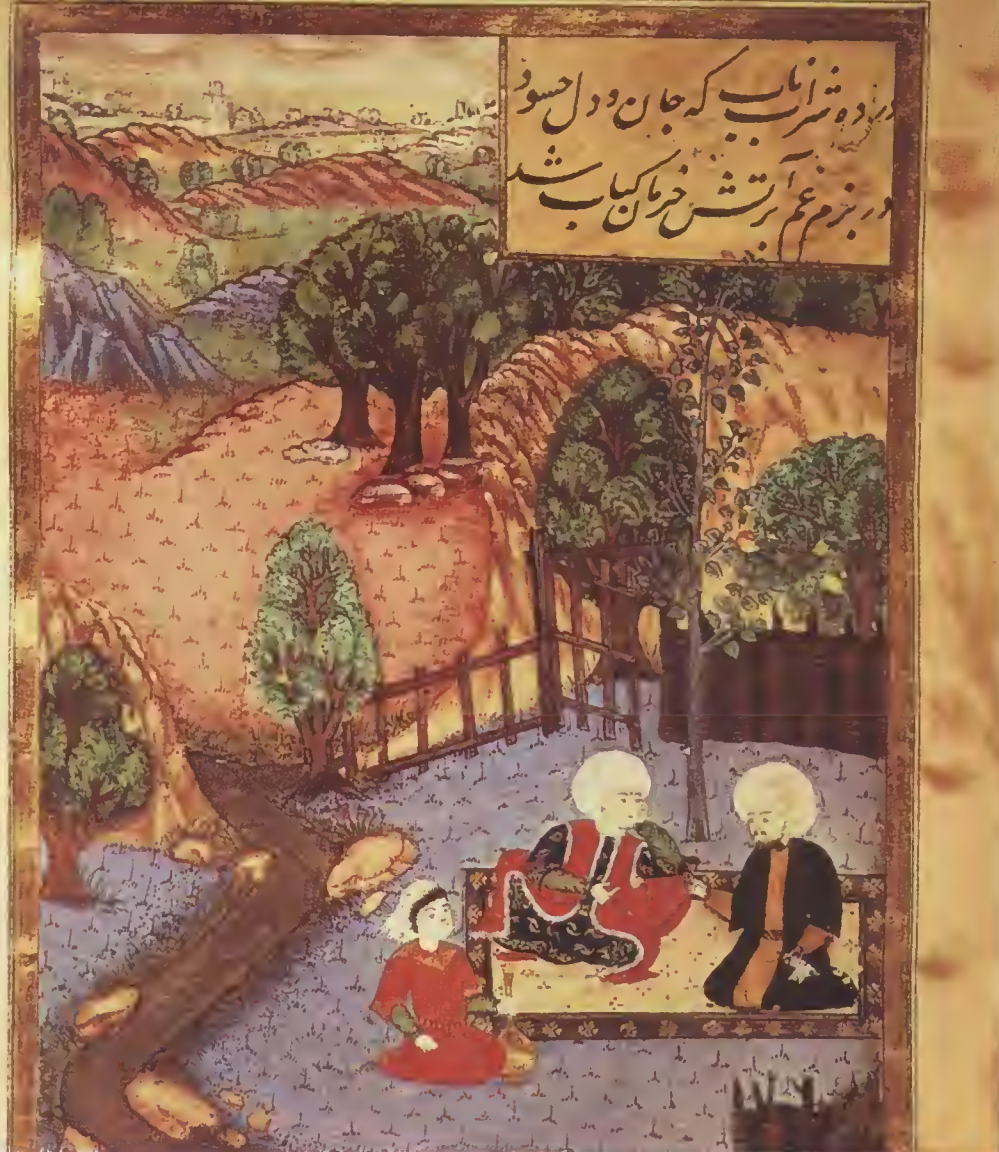 در ده شراب ناب که جان و دل حسود
در بزم غم بر آتش حرمان کباب شد